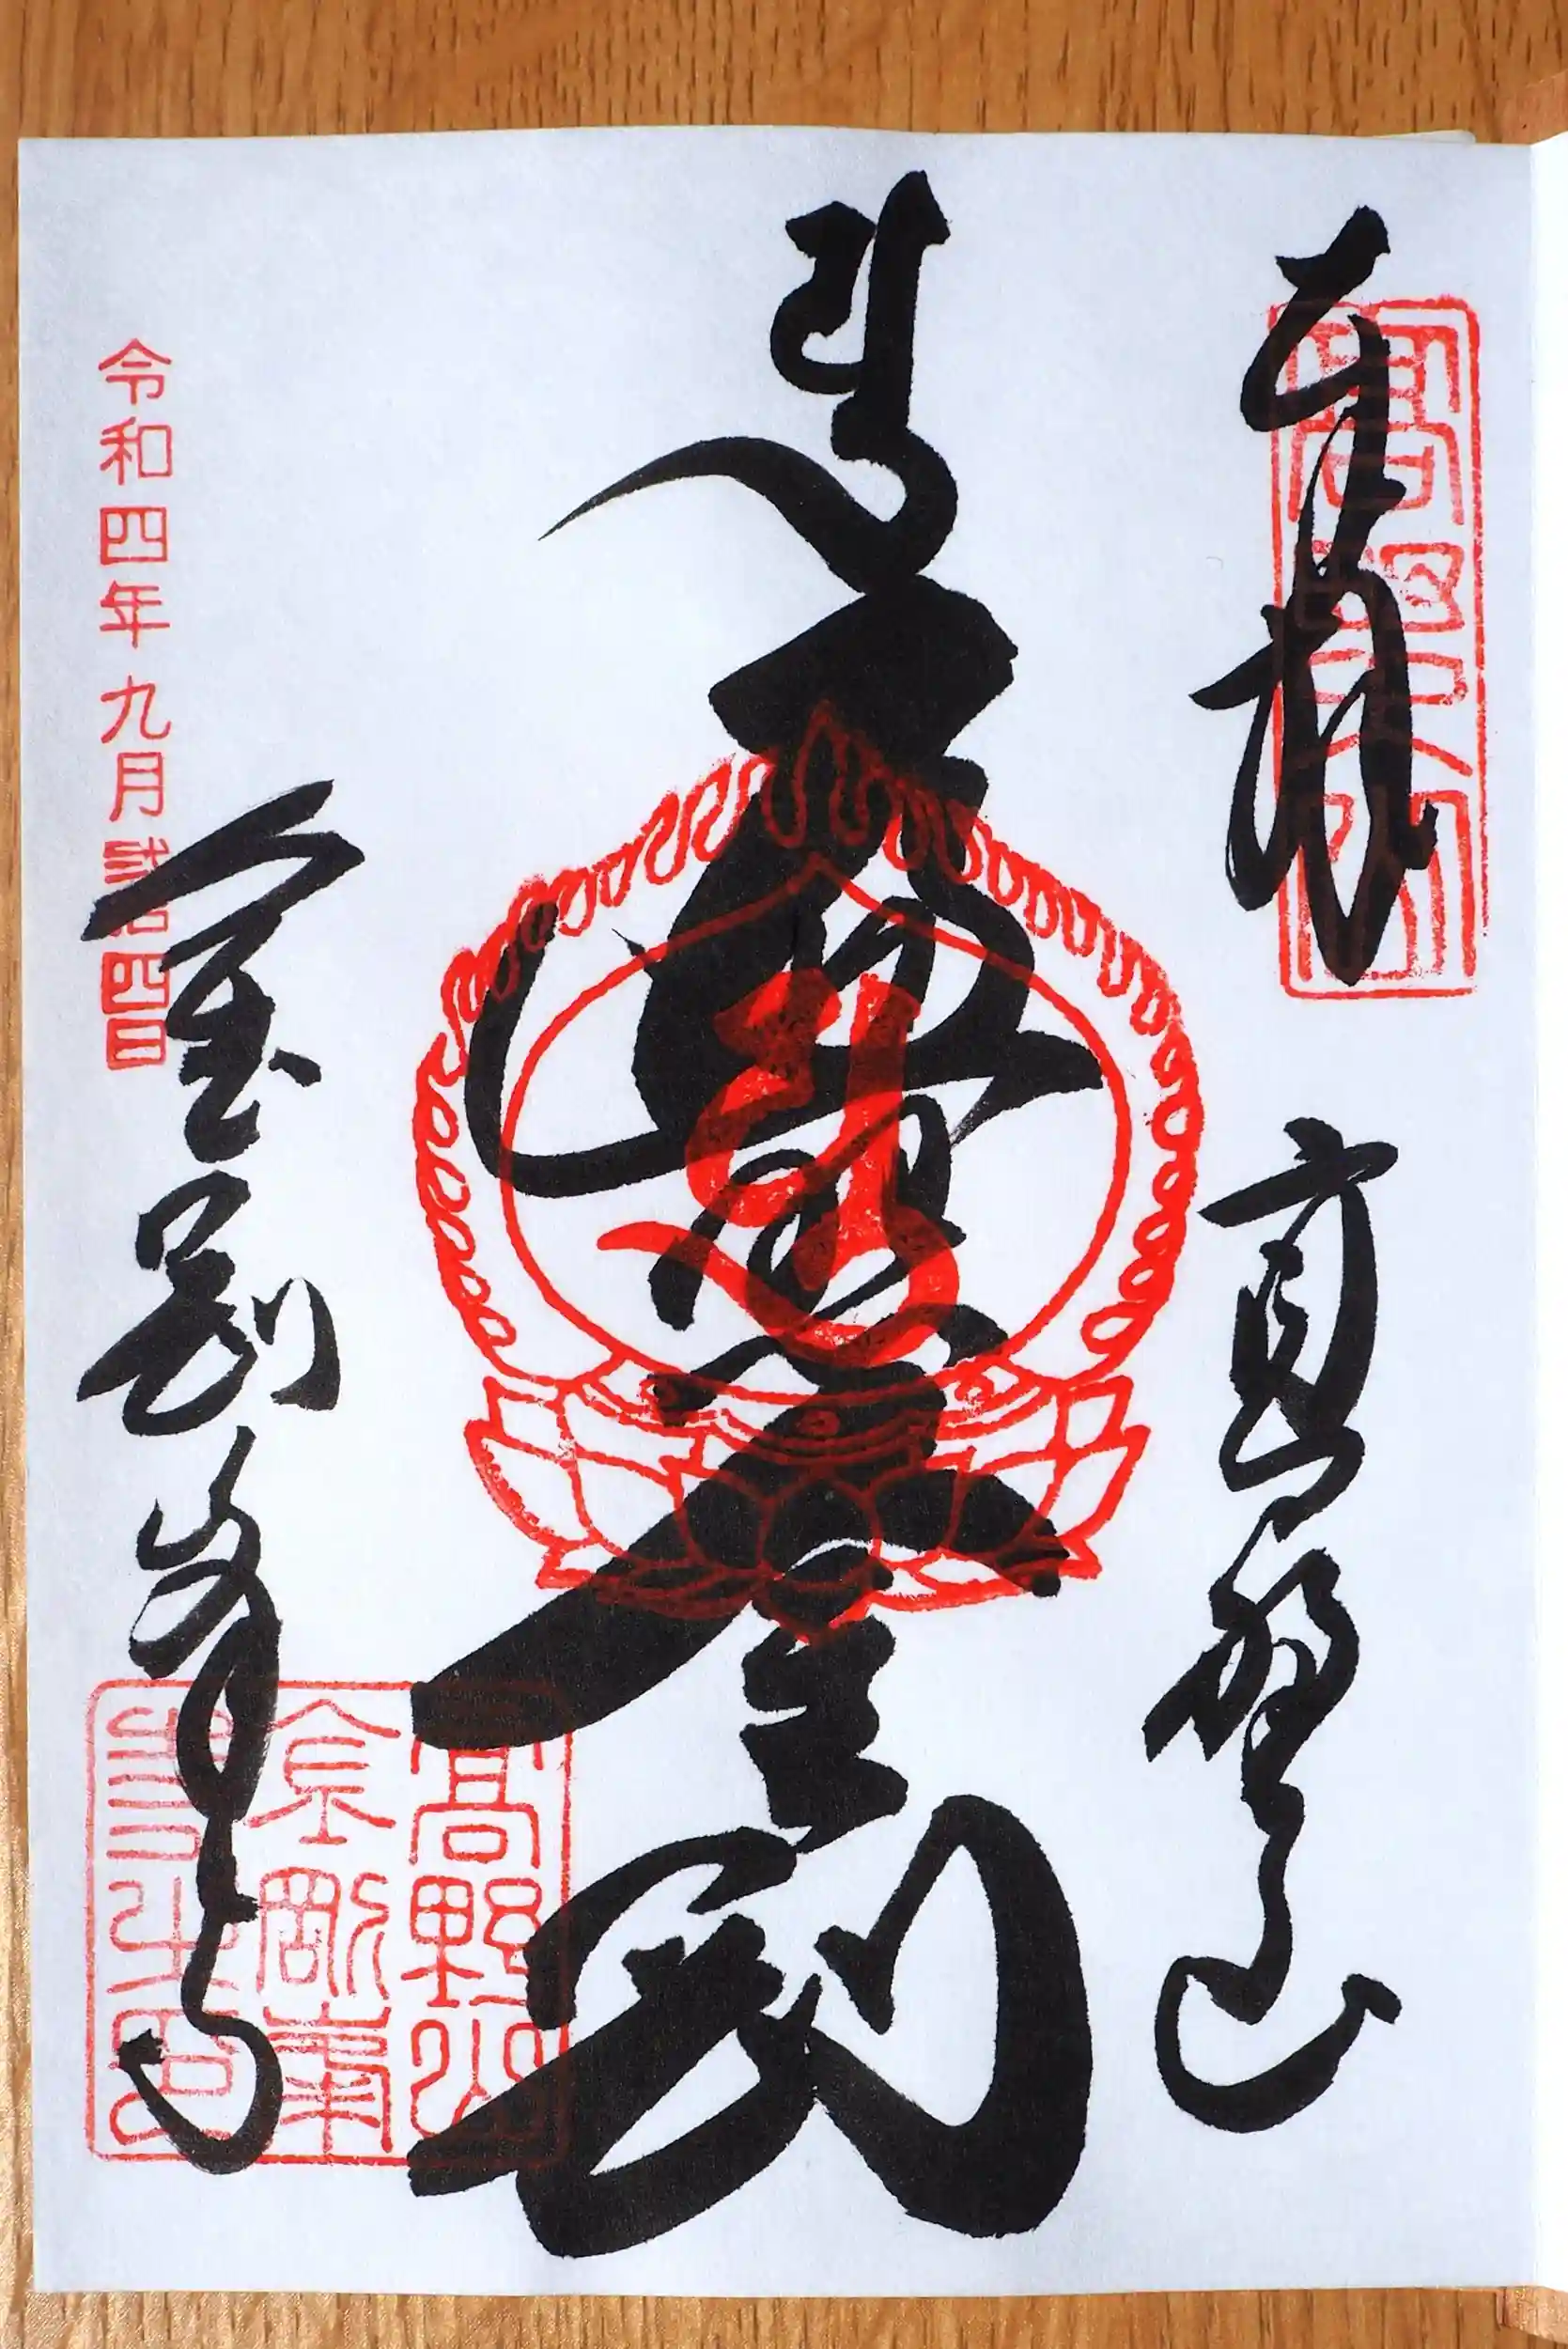 奉拝
高野山
高野山
遍照金剛
金剛峯寺
令和四年九月弐拾四日
高野山
金剛峯